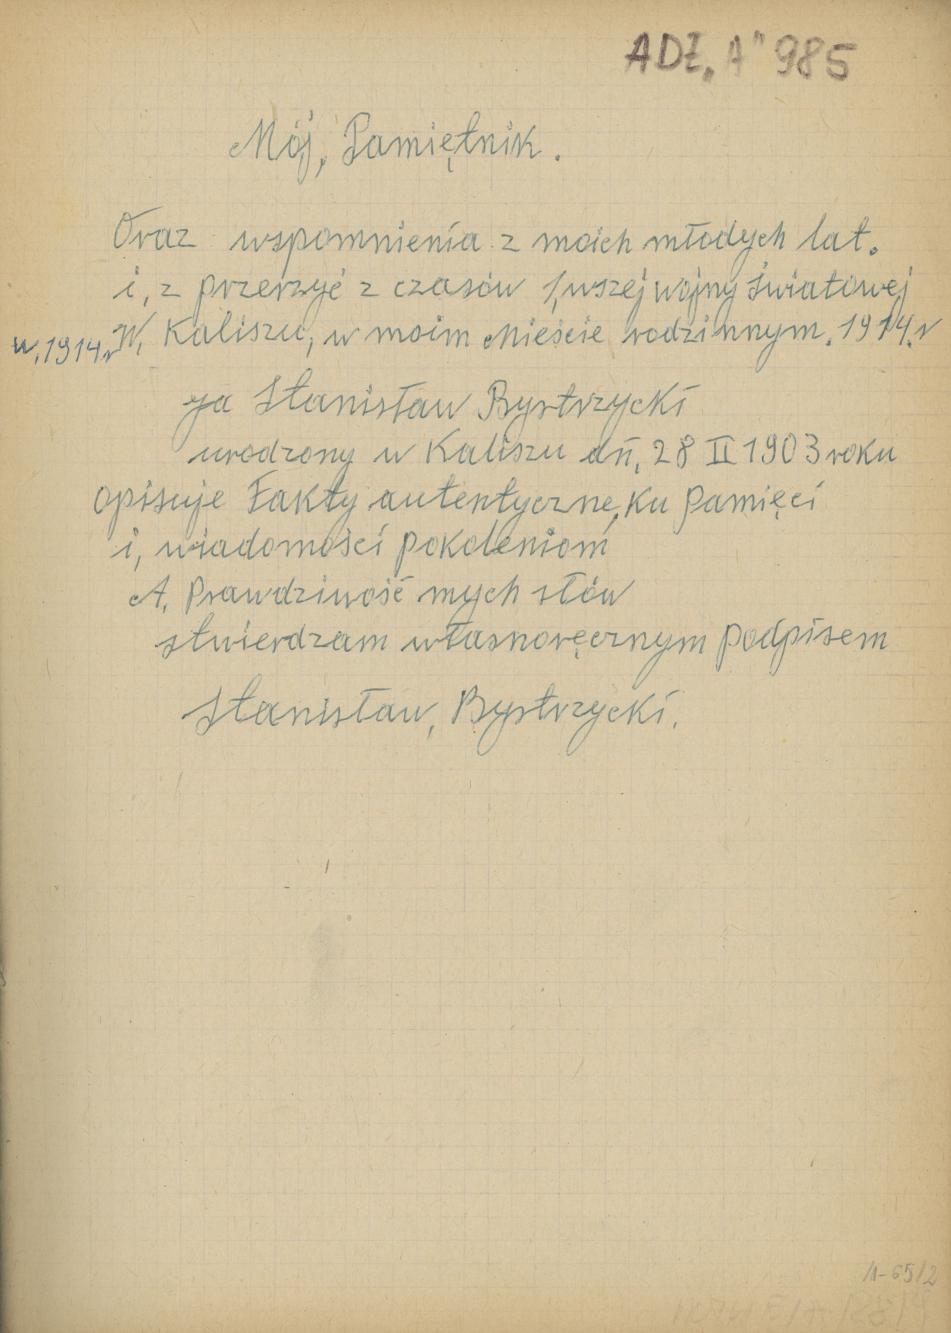 ADZ „A" 985
Mój, Pamiętnik.
Oraz wspomnienia z moich młodych lat.
i, z przerzyć z czasów 1,wszej wojny światowej
W, Kaliszu, w moim Mieście rodzinnym. 1914.r
w,1914.r
ja Stanisław Bystrzycki
urodzony w Kaliszu dń, 28 II 1903 roku
opisuje Fakty autentyczne, ku pamięci
i, wiadomości pokoleniom
A, Prawdziwość mych słów
stwierdzam własnoręcznym podpisem
Stanisław, Bystrzycki.
A-65/2